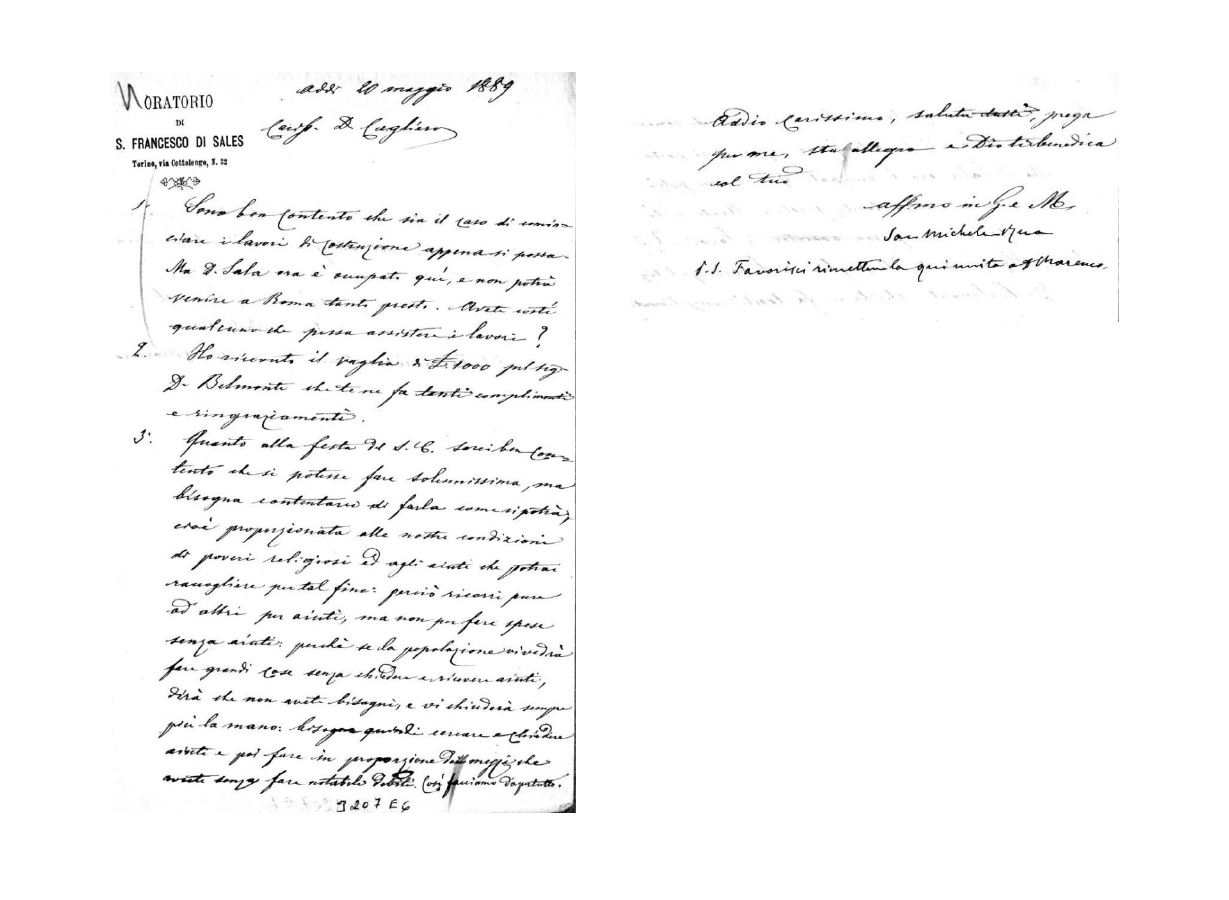 ORATORIO
DI
S. FRANCESCO DI SALES
Torino, via Cottolengo, N. 32
Addì 20 maggio 1889
Cariss. D. Cagliero
1. Sono ben contento che sia il caso di comin=
ciare i lavori di costruzione appena si possa.
Ma D. Sala ora è occupato quì, e non potrà
venire a Roma tanto presto. Avete costì
qualcuno che possa assistere i lavori?
2. Ho ricevuto il vaglia di £. 1000 pel sig.
D. Belmonte che te ne fa tanti complimenti
e ringraziamenti.
3. Quanto alla festa del S. C. sarei ben con=
tento che si potesse fare solennissima, ma
bisogna contentarci di farla come si potrà,
cioè proporzionata alle nostre condizioni
di poveri religiosi ed agli aiuti che potrai
raccogliere per tal fine: perciò ricorri pure
ad altri per aiuti, ma non per fare spese
senza aiuti: perchè se la popolazione vi vedrà
fare grandi cose senza chiedere e ricevere aiuti,
dirà che non avete bisogni, e vi chiuderà sempre
più la mano: bisogna quindi cercare e chiedere
aiuti e poi fare in proporzione dei mezzi che
avete senza fare notabile debiti. Così facciamo dapertutto.
3207 E6
Addio Carissimo, saluta tutti, prega
per me, sta allegro e Dio ti benedica
col tuo
aff.mo in G. e M.
Sac. Michele Rua
P.S. Favorisci rimettere la qui unita a D. Marenco.